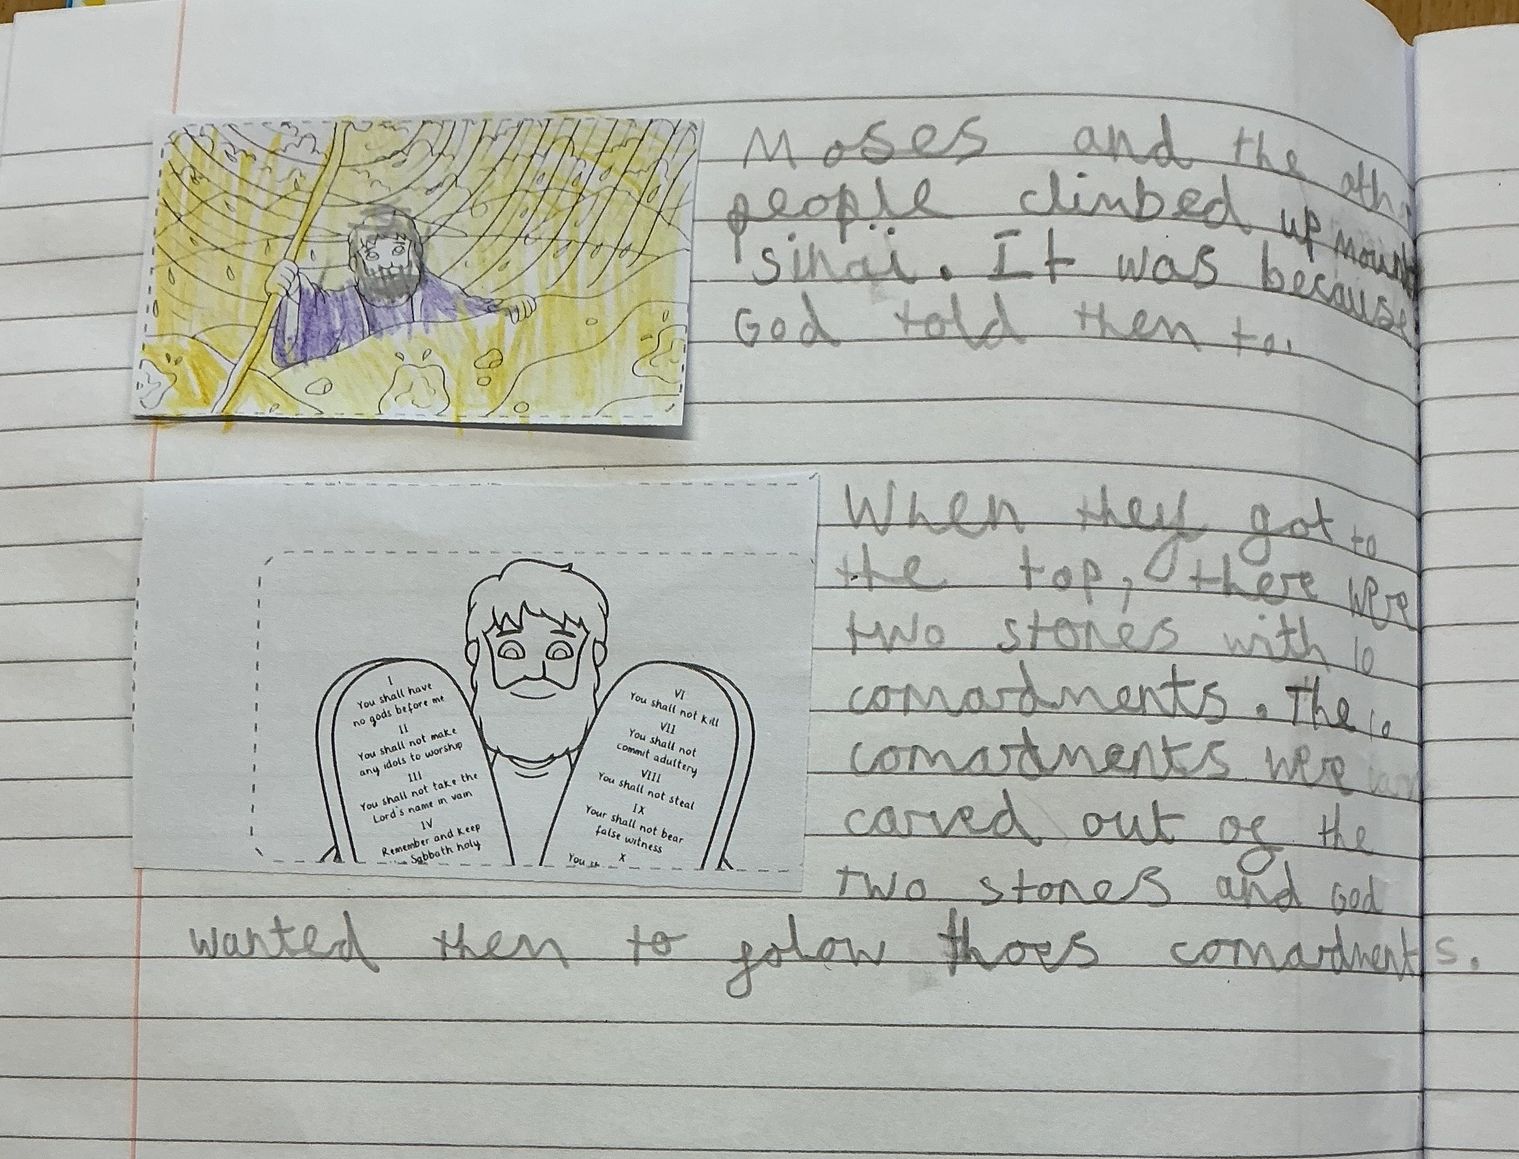 Moses and the oth
people climbed up mount
sinai. It was because
God told then to.
When they got to
the top, there were
two stones with 10
comardments. The 10
comardments were
carved out of the
two stones and God
wanted then to folow thoes comardments.
I
You shall have
no gods before me
II
You shall not make
any idols to worship
III
You shall not take the
Lord's name in vain
IV
Remember and keep
Sabbath holy
VI
You shall not kill
VII
You shall not
commit adultery
VIII
You shall not steal
IX
Your shall not bear
false witness
X
You